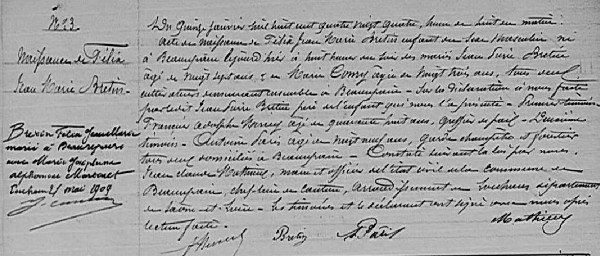 N° 3
Naissance de Félix
Jean Marie Bretin
Bretin Félix Jean Marie
marié à Beaurepaire
avec Marie Joséphine
Alphonsine
25 mai 1909
Du Quinze janvier mil huit cent quatre vingt quatre, heure de huit du matin
acte de naissance de Félix Jean Marie Bretin enfant du sexe masculin né
à Beaurepaire à huit heures du soir des mariés Jean Bretin
âgé de vingt sept ans, et Marie âgée de vingt trois ans, tous deux
cultivateurs demeurant ensemble à Beaurepaire - Sur la déclaration à nous faite
par ledit Jean Bretin père de l'enfant qu'il nous a présenté - Premier témoin
François Adolphe âgé de cinquante huit ans, greffier de paix - Deuxième
témoin - Antoine Patis âgé de vingt neuf ans, garde champêtre et
tous deux domiciliés à Beaurepaire - Constaté suivant la loi par nous
Jean Claude Mathieu, maire et officier de l'état civil de la commune de
Beaurepaire, chef lieu de canton, arrondissement de Louhans département
de Saône-et-Loire - Les témoins et le déclarant ont signé avec nous après
lecture faite.
Bretin A Patis Mathieu